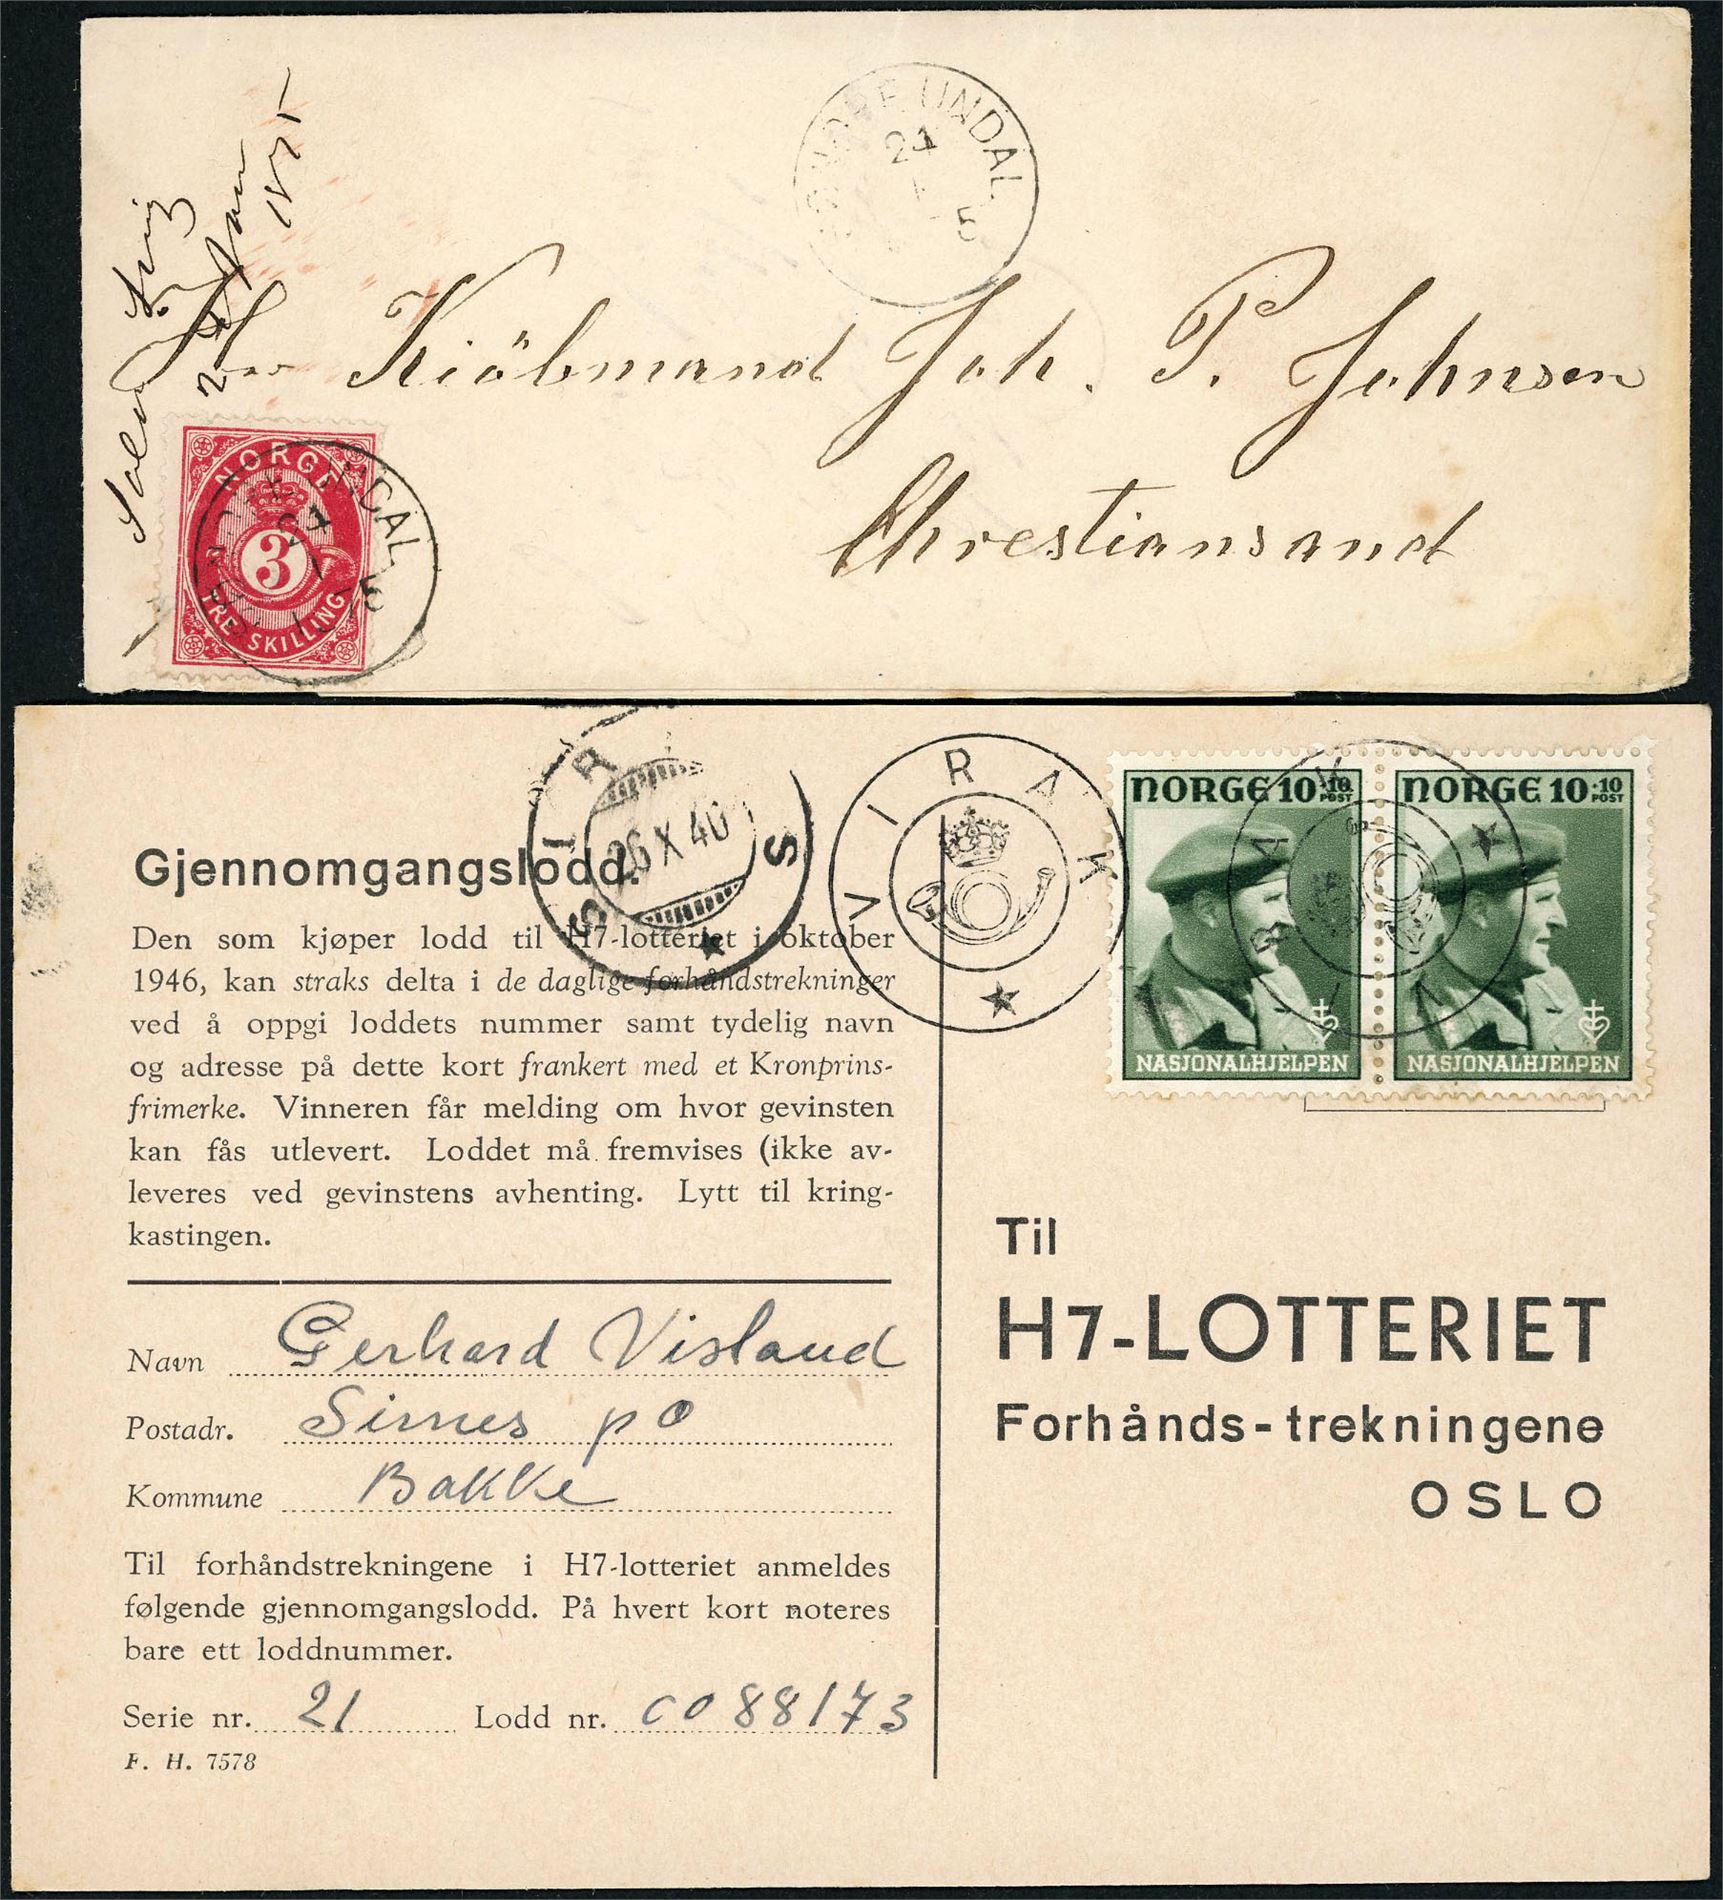 SØNDRE UNDAL
24
5
24 Jan
1875
Hr Kiöbmand Joh. P. Johnsen
Christiansand
NORGE
3
TRE SKILLING
UNDAL
5
SIRNES
26 X 46
VIRAK
NORGE 10+10
POST
NASJONALHJELPEN
NORGE 10+10
POST
NASJONALHJELPEN
VIRAK
Gjennomgangslodd.
Den som kjøper lodd til H7-lotteriet i oktober
1946, kan straks delta i de daglige forhåndstrekninger
ved å oppgi loddets nummer samt tydelig navn
og adresse på dette kort frankert med et Kronprins-
frimerke. Vinneren får melding om hvor gevinsten
kan fås utlevert. Loddet må fremvises (ikke av-
leveres ved gevinstens avhenting. Lytt til kring-
kastingen.
Navn Gerhard Visland
Postadr. Sirnes po
Kommune Bakke
Til forhåndstrekningene i H7-lotteriet anmeldes
følgende gjennomgangslodd. På hvert kort noteres
bare ett loddnummer.
Serie nr. 21 Lodd nr. C088173
F. H. 7578
Til
H7-LOTTERIET
Forhånds-trekningene
OSLO